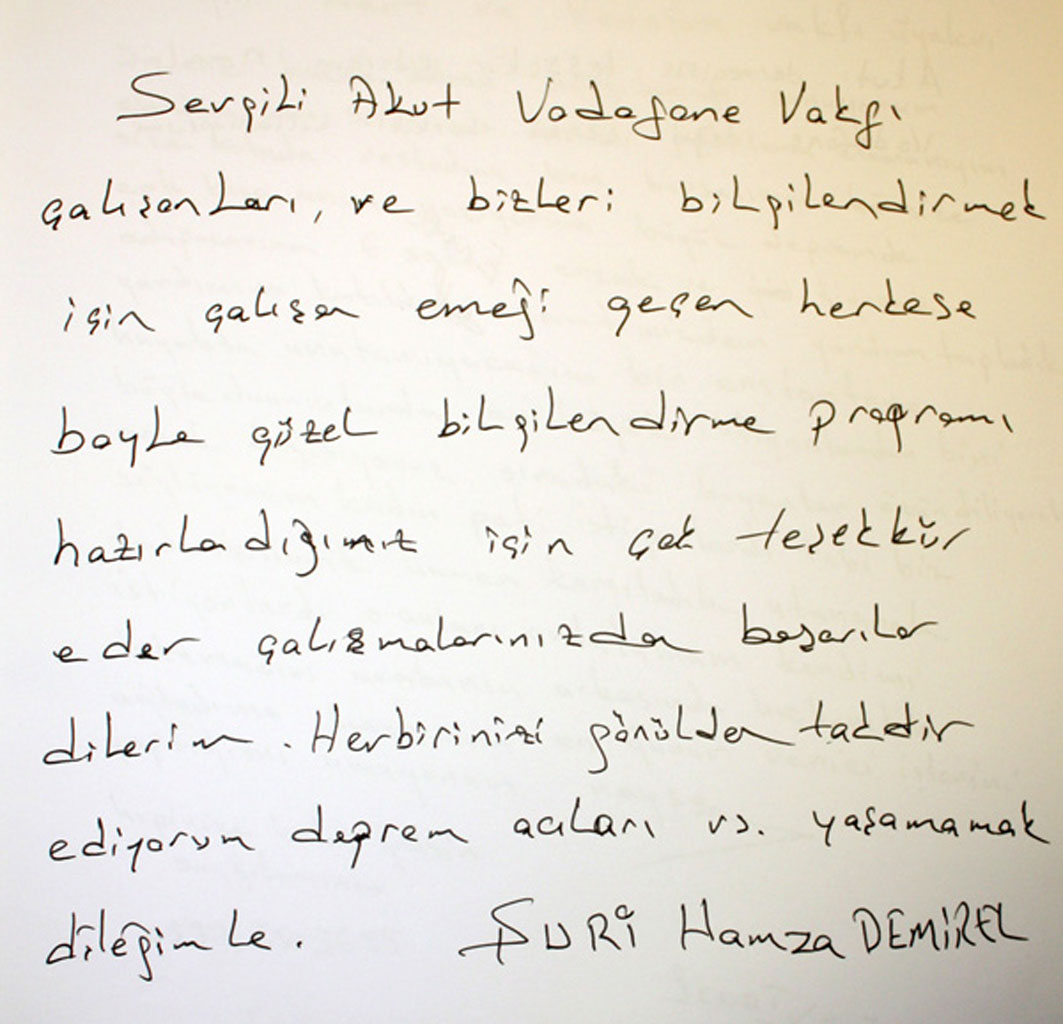 Sevgili Akut Vodafone Vakfı
çalışanları, ve bizleri bilgilendirmek
için çalışan emeği geçen herkese
boyle güzel bilgilendirme programı
hazırladığınız için çok teşekkür
eder çalışmalarınızda başarılar
dilerim. Herbirinizi gönülden takdir
ediyorum deprem acıları vs. yaşamamak
dileğimle. ŞURİ Hamza DEMİREL